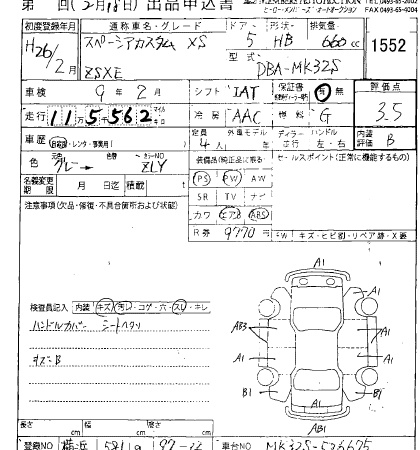 第 回(2月18日)出品申込書
FAX (0493)-65-4004
初度登録年月 通称車名・グレード ドア・形状・排気量
H26/2月 スペーシアカスタム XS 5 HB 660cc 1552
ZSXE 型式 DBA-MK32S
車検 9年2月 シフト IAT 保証書 有・無 評価点
走行 11万5千562 マイル キロ 冷房 AAC 燃料 G 3.5
車歴 自家用・レンタ・事業用 定員 4人 外車モデル ディーラー ハンドル 左・右 内装評価 B
色 元色 グレー → 色替 カラーNO ZLY 装備品(純正品に限る) セールスポイント(正常に機能するもの)
名義変更期限 月 日迄 積載 PS PW AW
注意事項(欠品・修復・不具合箇所および状態) SR TV ナビ
カワ エアB ABS
R券 9770 W キズ・ヒビ割・リペア跡・X要
A1
検査員記入 内装 キズ・汚レ・コゲ・穴・スレ・キレ
ハンドルカバー シートヘタリ
A1 A1
AB3
キズ=B
A1 A1
B1 B1
A1
AB1
長さ cm 幅 cm 高さ cm
登録NO 車台NO MK32S-526675